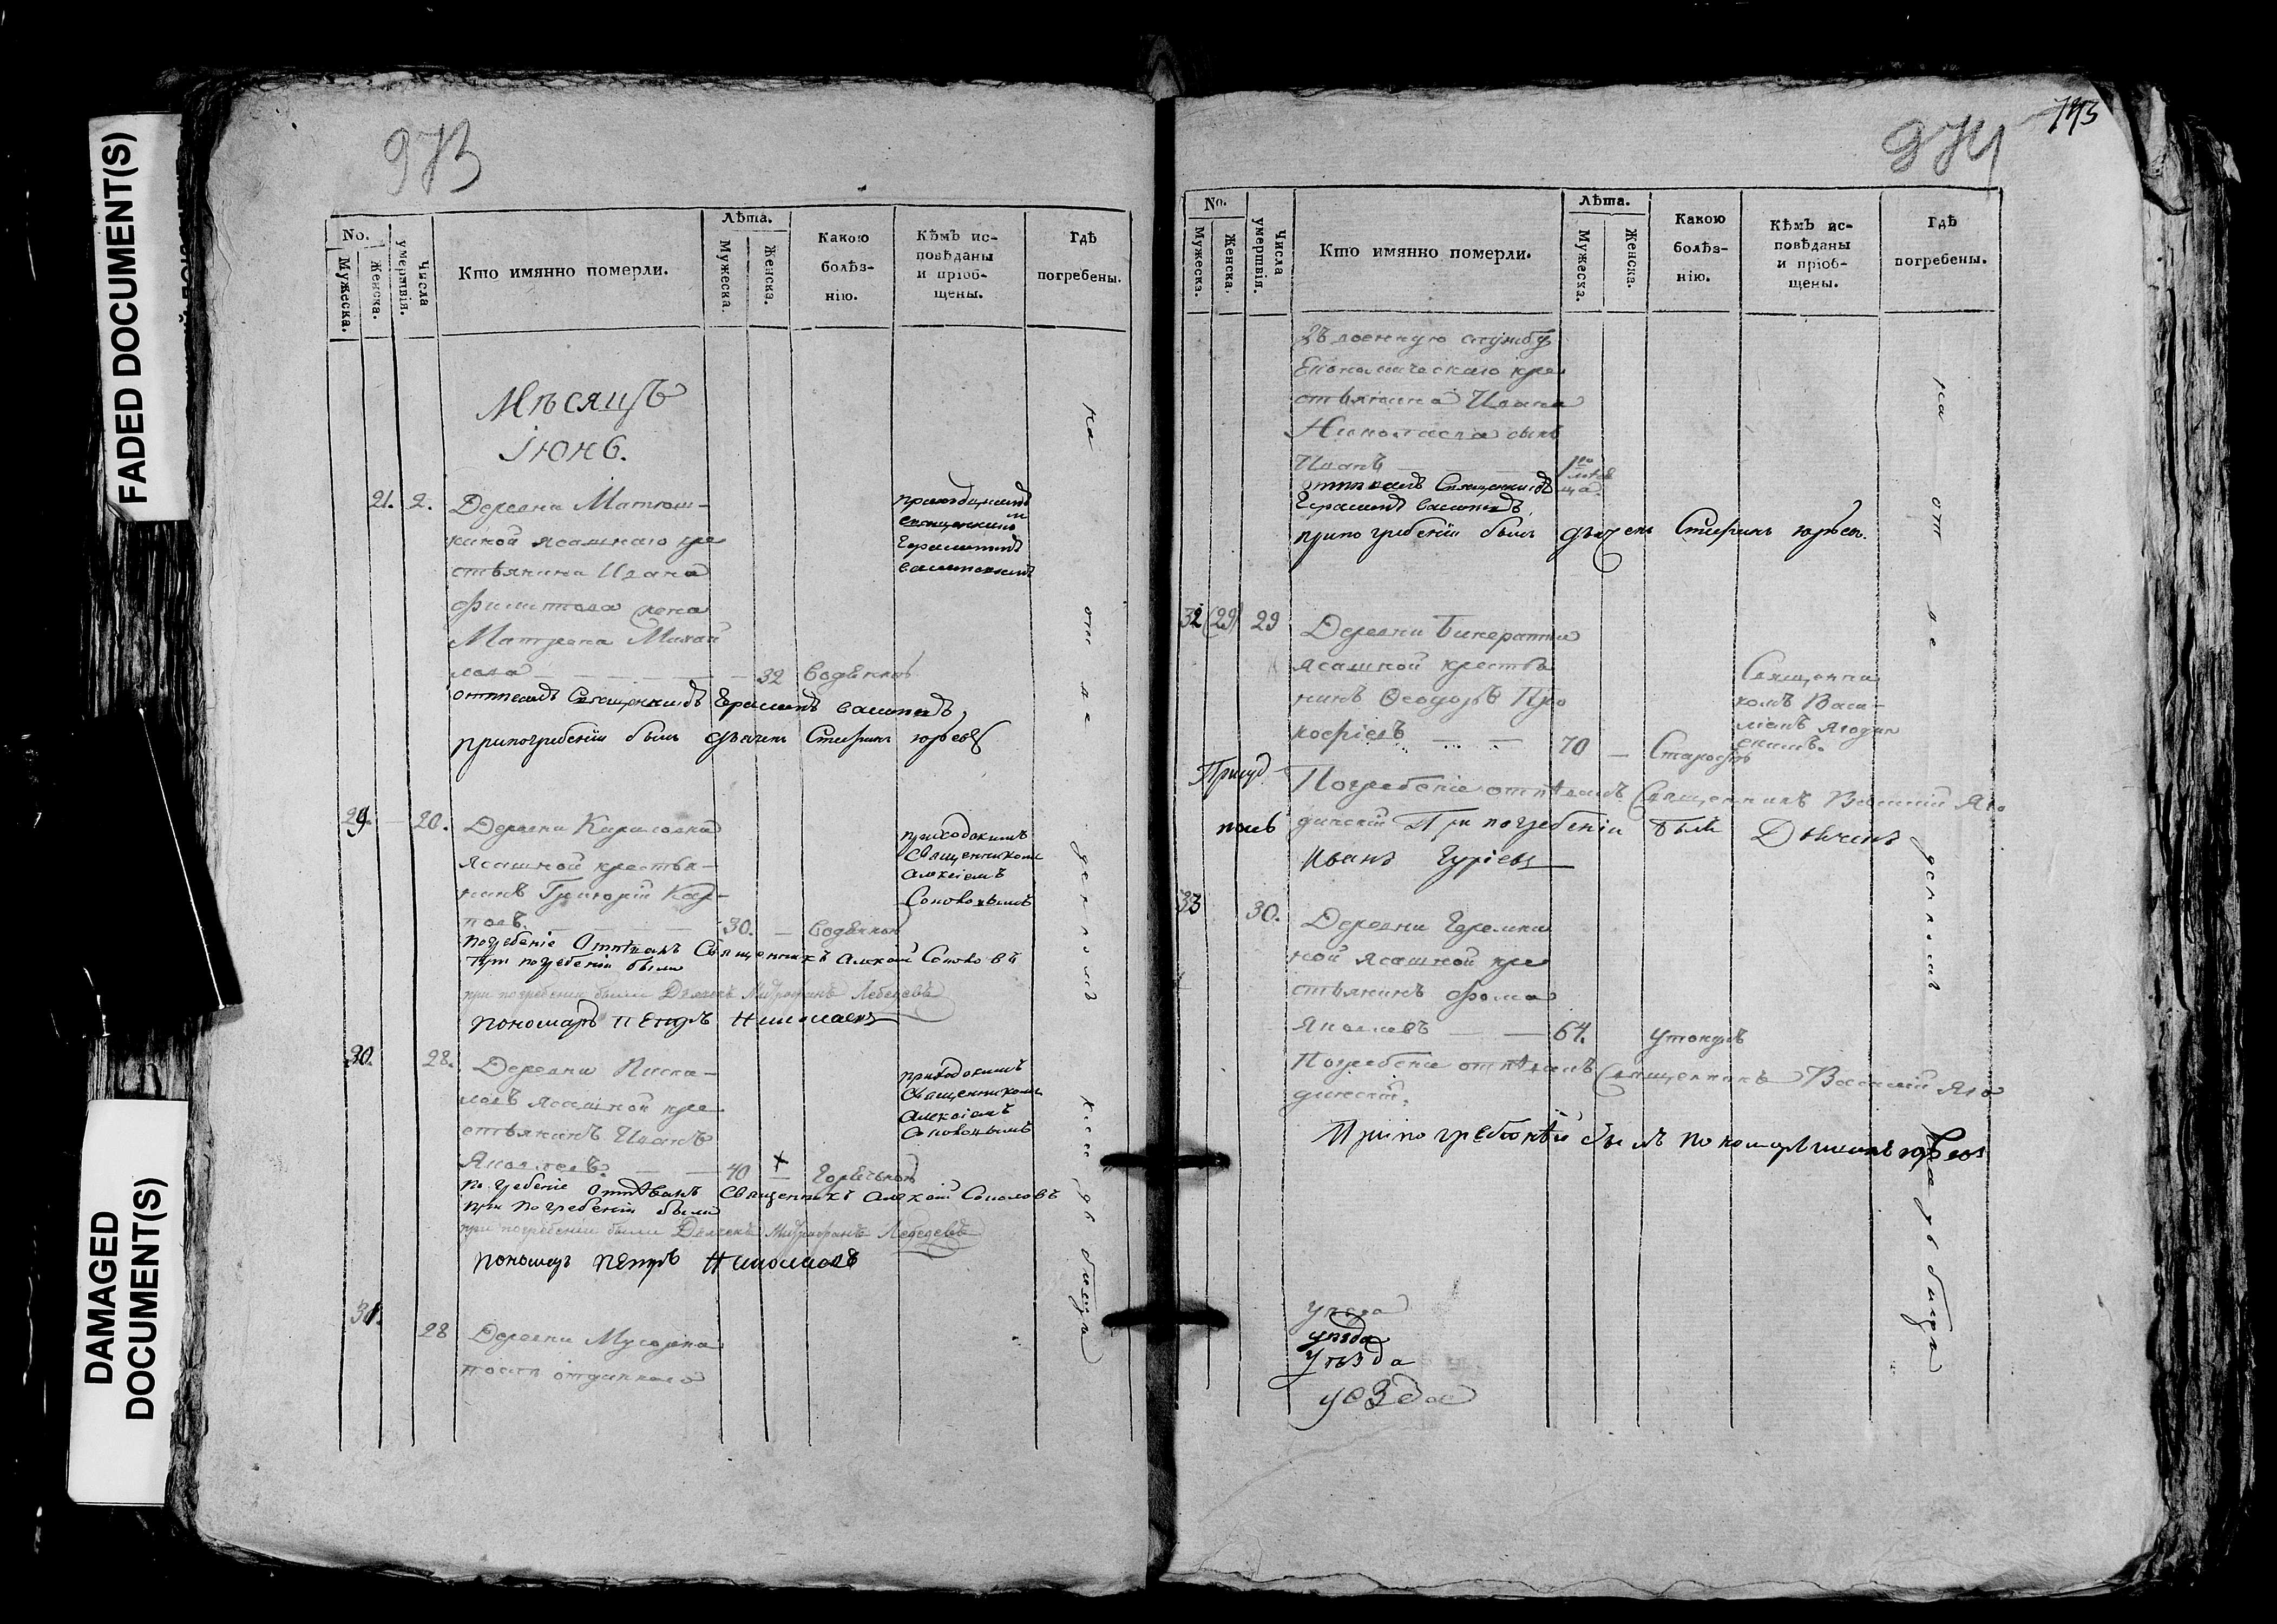 FADED DOCUMENT(S)
DAMAGED DOCUMENT(S)
973
No.
Мужеска.
Женска.
Числа умертвія.
Кто имянно померли.
Лѣта.
Мужеска.
Женска.
Какою болѣз-
нію.
Кѣмъ ис-
повѣданы
и пріоб-
щены.
Гдѣ
погребены.
Мѣсяцъ
Іюнь.
21. 2. Деревни Матюш-
киной ясашнаго кре
стьянина Ивана
Филиппова жена
Матрена Михай
лова 32 водяною
приходскимъ
священником
Герасимомъ
отпевалъ Священникъ Герасимъ
при погребеніи былъ дьячекъ Стефанъ Юрьевъ
29. 20. Деревни Кириловки
ясашной крестья-
нинъ Григорій Кар-
повъ 30. водяною
приходскимъ
Священникомъ
Алексіемъ
Соколовымъ
погребеніе Отпѣвалъ Священникъ Алексій Соколовъ
при погребеніи были
при погребеніи были Дьячекъ Митрофанъ Лебедевъ
пономарь Петръ Николаевъ
30. 28. Деревни
ясашной кре
стьянинъ Иванъ
Яковлевъ. 40 горячкою
приходскимъ
Священникомъ
Алексіемъ
Соколовымъ
погребеніе Отпѣвалъ Священникъ Алексій Соколовъ
при погребеніи были
при погребеніи были Дьячекъ Митрофанъ Лебедевъ
пономарь Петръ Николаевъ
31. 28 Деревни Мусорки
отданнаго
на отведенномъ кладбищѣ
974
No.
Мужеска.
Женска.
Числа умертвія.
Кто имянно померли.
Лѣта.
Мужеска.
Женска.
Какою
болѣз-
нію.
Кѣмъ ис-
повѣданы
и пріоб-
щены.
Гдѣ
погребены.
въ военную службу
Економическаго кре
стьянина Ивана
Николаева сынъ
Иванъ
отпевалъ Священникъ
Герасимъ
при погребеніи былъ дьячекъ Стефанъ Юрьевъ.
32 (29) 29 Деревни
ясашной крестья
нинъ Ѳеодоръ Про
кофіевъ 70 Старостію
Священни
комъ Васи-
Ягодин
скимъ.
Погребеніе отпѣвалъ Священникъ Василій Яго
динскій При погребеніи былъ Дьячекъ
Иванъ Гуріевъ
33 30. Деревни Еремки
ной ясашной кре
стьянинъ Фома
Яковлевъ 64. утонулъ
Погребеніе отпѣвалъ Священникъ Василій Яго
динскій.
При погребеніи былъ
уезда
уезда
уезда
уезда
на отведенномъ кладбищѣ